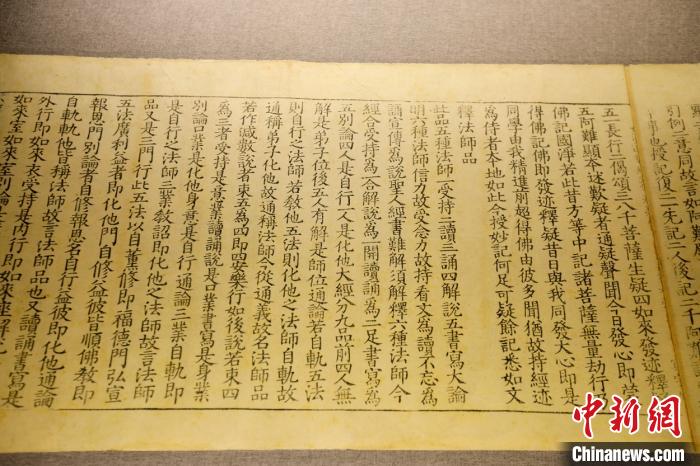 五一長行二偈頌三八千菩薩生疑四如來發迹釋
五阿難顯本述歎疑者通疑聲聞今日發心即
佛記國淨若此昔方等中記諸菩薩無量劫行
得佛記佛即發迹釋疑昔日與我同發大心即是
同學由我精進前超得佛由彼多聞猶故持經迹
為侍者本地如此今授妙記何足可疑餘記悉如文
釋法師品
此品五種法師一受持二讀三誦四解說五書寫大論
明六種法師信力故受念力故持看文為讀不忘為
誦宣傳為說聖人經書難解須解釋六種法師今
經合受持為一合解說為一開讀誦為二足書寫為
五別論四人是自行一人是化他大經分九品前四人無
解是弟子位後五人有解是師位通論若自軌五法
則自行之法師若教他五法則化他之法師自軌故
通稱弟子化他故通稱法師今從通義故名法師品
若作減數說者束五為四即安樂行如後說若束四
為三者受持是意業讀誦說是口業書寫是身業
別論口業是化他身意是自行通論三業自軌即
是自行之法師三業教詔即化他之法師故言法師
品又是三門行此五法以自熏修即福德門弘宣
五法廣利益者即化他門自修益彼皆順佛教即
報恩門別論者自修報恩名自行益彼即化他通論
自軌軌他皆稱法師故言法師品也又讀誦書寫是
外行即如來衣受持是內行即如來
中新网
Chinanews.com